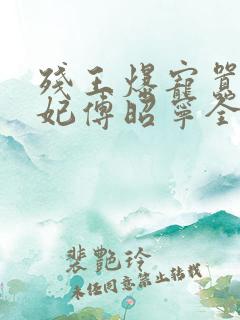 残王爆宠嚣
妃傅昭宁全
裴艳玲
未经同意禁止转载